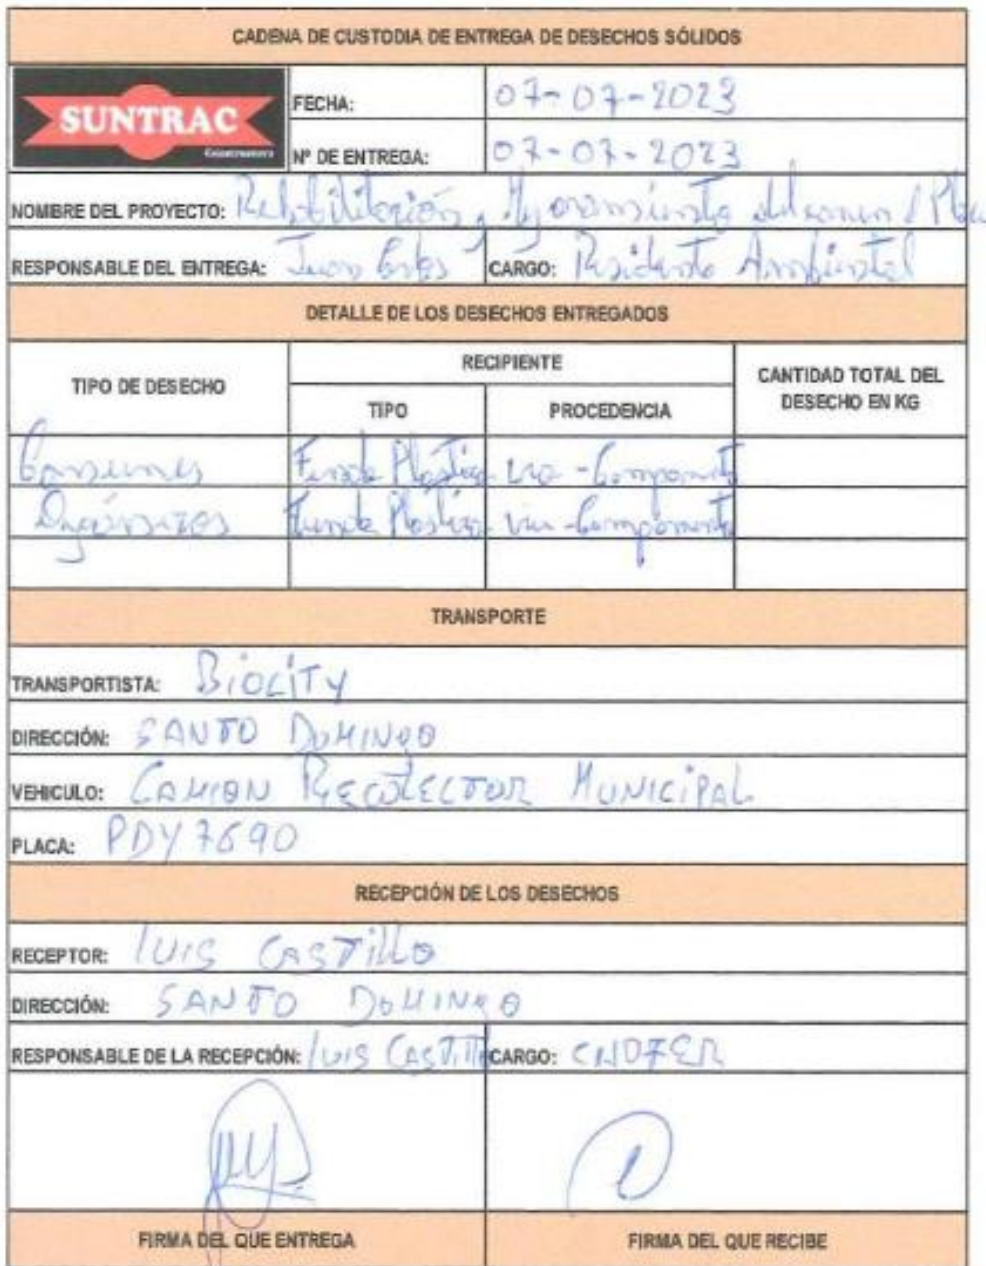 CADENA DE CUSTODIA DE ENTREGA DE DESECHOS SÓLIDOS
SUNTRAC
Constructora
FECHA: 07-07-2023
Nº DE ENTREGA: 07-07-2023
NOMBRE DEL PROYECTO: Rehabilitación y Mejoramiento
RESPONSABLE DEL ENTREGA: Juan CARGO: Residente Ambiental
DETALLE DE LOS DESECHOS ENTREGADOS
TIPO DE DESECHO RECIPIENTE CANTIDAD TOTAL DEL DESECHO EN KG
TIPO PROCEDENCIA
Comunes Funda Plastica via - Campamento
Orgánicos Funda Plastica via - Campamento
TRANSPORTE
TRANSPORTISTA: BiociTy
DIRECCIÓN: SANTO DOMINGO
VEHICULO: CAMION RECOLECTOR MUNICIPAL
PLACA: PDY 7690
RECEPCIÓN DE LOS DESECHOS
RECEPTOR: LUIS CASTILLO
DIRECCIÓN: SANTO DOMINGO
RESPONSABLE DE LA RECEPCIÓN: LUIS CASTILLO CARGO: CHOFER
FIRMA DEL QUE ENTREGA FIRMA DEL QUE RECIBE